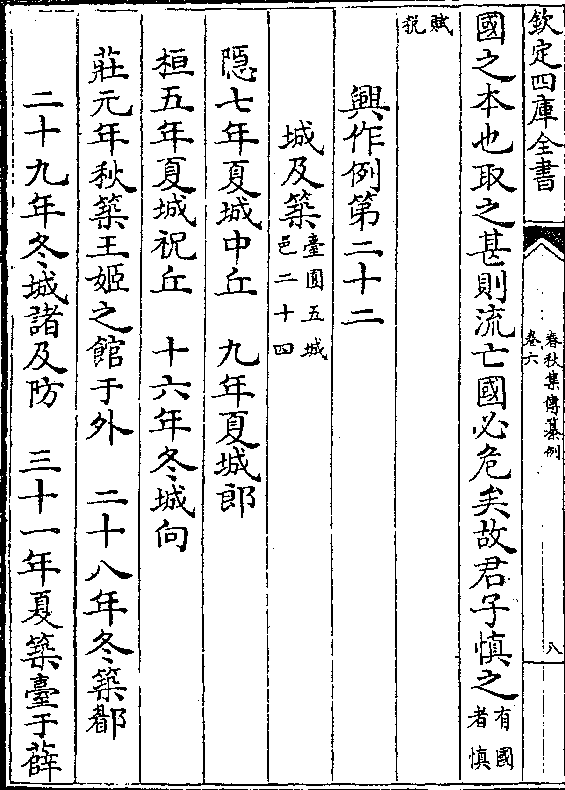 欽定四庫全書
春秋集傳纂例
卷六
八
國之本也取之甚則流亡國必危矣故君子慎之有國者慎
賦税
興作例第二十二
城及築臺囿五城邑二十四
隱七年夏城中丘　九年夏城郎
桓五年夏城祝丘　十六年冬城向
莊元年秋築王姬之館于外　二十八年冬築郿
二十九年冬城諸及防　三十一年夏築臺于薛